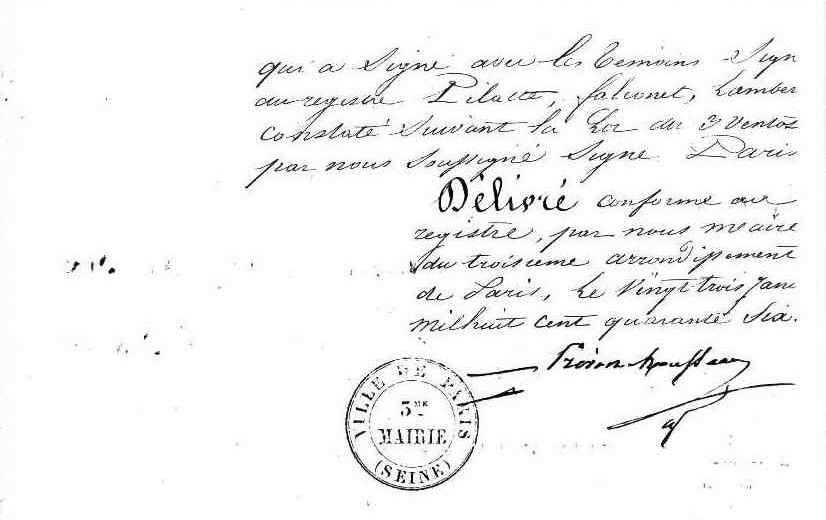 qui a Signé avec les temoins Sign
au registre Pilatte, falconet, Lamber
constaté Suivant la Loi du 3 Ventos
par nous soussigné Signe Paris
Délivré conforme au
registre, par nous maire
du troisieme arrondissement
de Paris, Le Vingt trois Janv
mil huit cent quarante Six.
VILLE DE PARIS
3ME
MAIRIE
(SEINE)